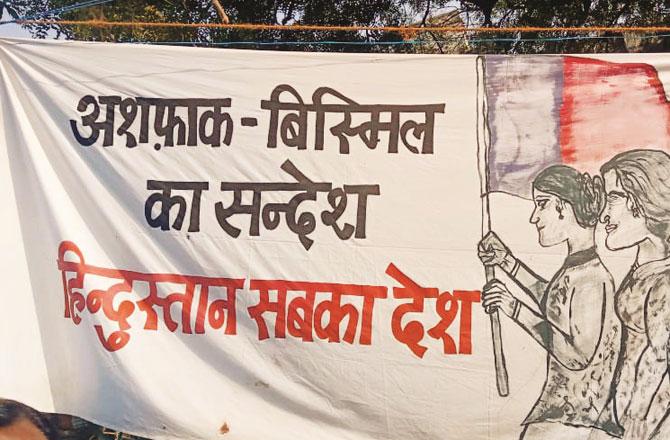 अशफ़ाक - बिस्मिल
का सन्देश
हिन्दुस्तान सबका देश